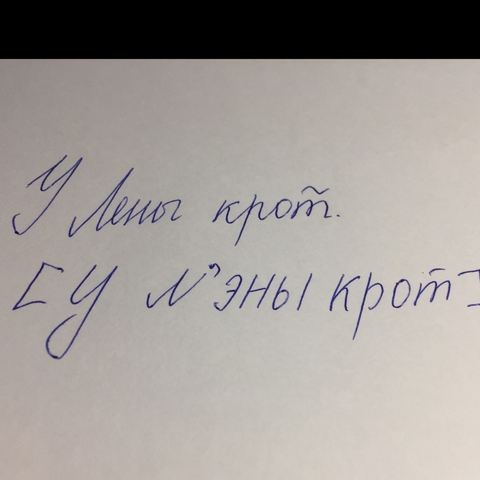 У Лены крот.
[У л'эны крот]